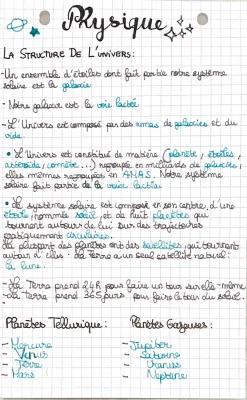 Physique
LA STRUCTURE DE L'UNIVERS:
-Un ensemble d'étoiles dont fait partie notre système
solaire est la galaxie
-Notre galaxie est la voie lactée
-L'Univers est composé par des amas de galaxies et du
vide
• L'Univers est constitué de matière (planète, étoiles,
astéroïde, comète...) regroupée en milliards de galaxies,
elles mêmes regroupées en AMAS. Notre système
solaire fait partie de la voie lactée
• Le système solaire est composé en son centre, d'une
étoile nommée soleil, et de huit planètes qui
tournent autour de lui sur des trajectoires
pratiquement circulaires.
La plupart des planètes ont des satellites qui tournent
autour d'elles. La Terre a un seul satellite naturel:
la lune.
-La Terre prend 24h pour faire un tour sur elle-même
-La Terre prend 365 jours pour faire le tour du soleil.
Planètes Tellurique: Planètes Gazeuses:
- Mercure - Jupiter
- Vénus - Saturne
- Terre - Uranus
- Mars - Neptune